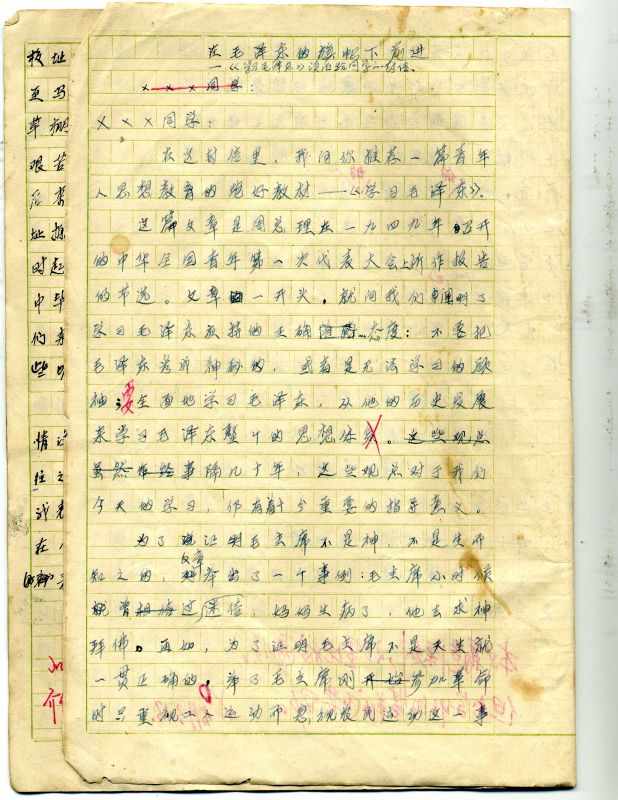 在毛泽东的旗帜下前进
—《学习毛泽东》读后给同学的一封信
×××同学
×××同学:
在这封信里,我向你推荐一篇青年
人思想教育的绝好教材——《学习毛泽东》。
这篇文章是周总理在一九四九年召开
的中华全国青年第一次代表大会上所作报告
的节选。文章一开头,就向我们阐明了
学习毛泽东应持的正确态度:不要把
毛泽东看成神秘的,或者是无法学习的领
袖;要全面地学习毛泽东,从他的历史发展
来学习毛泽东整个的思想体系。这些观点
虽然事隔几十年,这些观点对于我们
今天的学习,仍有着十分重要的指导意义。
为了证明毛主席不是神,不是生而
知之的,文章举出了一个事例:毛主席小时候
迷信,妈妈生病了,他去求神
拜佛。再如,为了证明毛主席不是天生就
一贯正确的,举了毛主席刚开始参加革命
时只重视工人运动而忽视农民运动这一事
校址
亚马
草棚
艰苦
后
址
时起
中毕
们
些
情
往
试
在